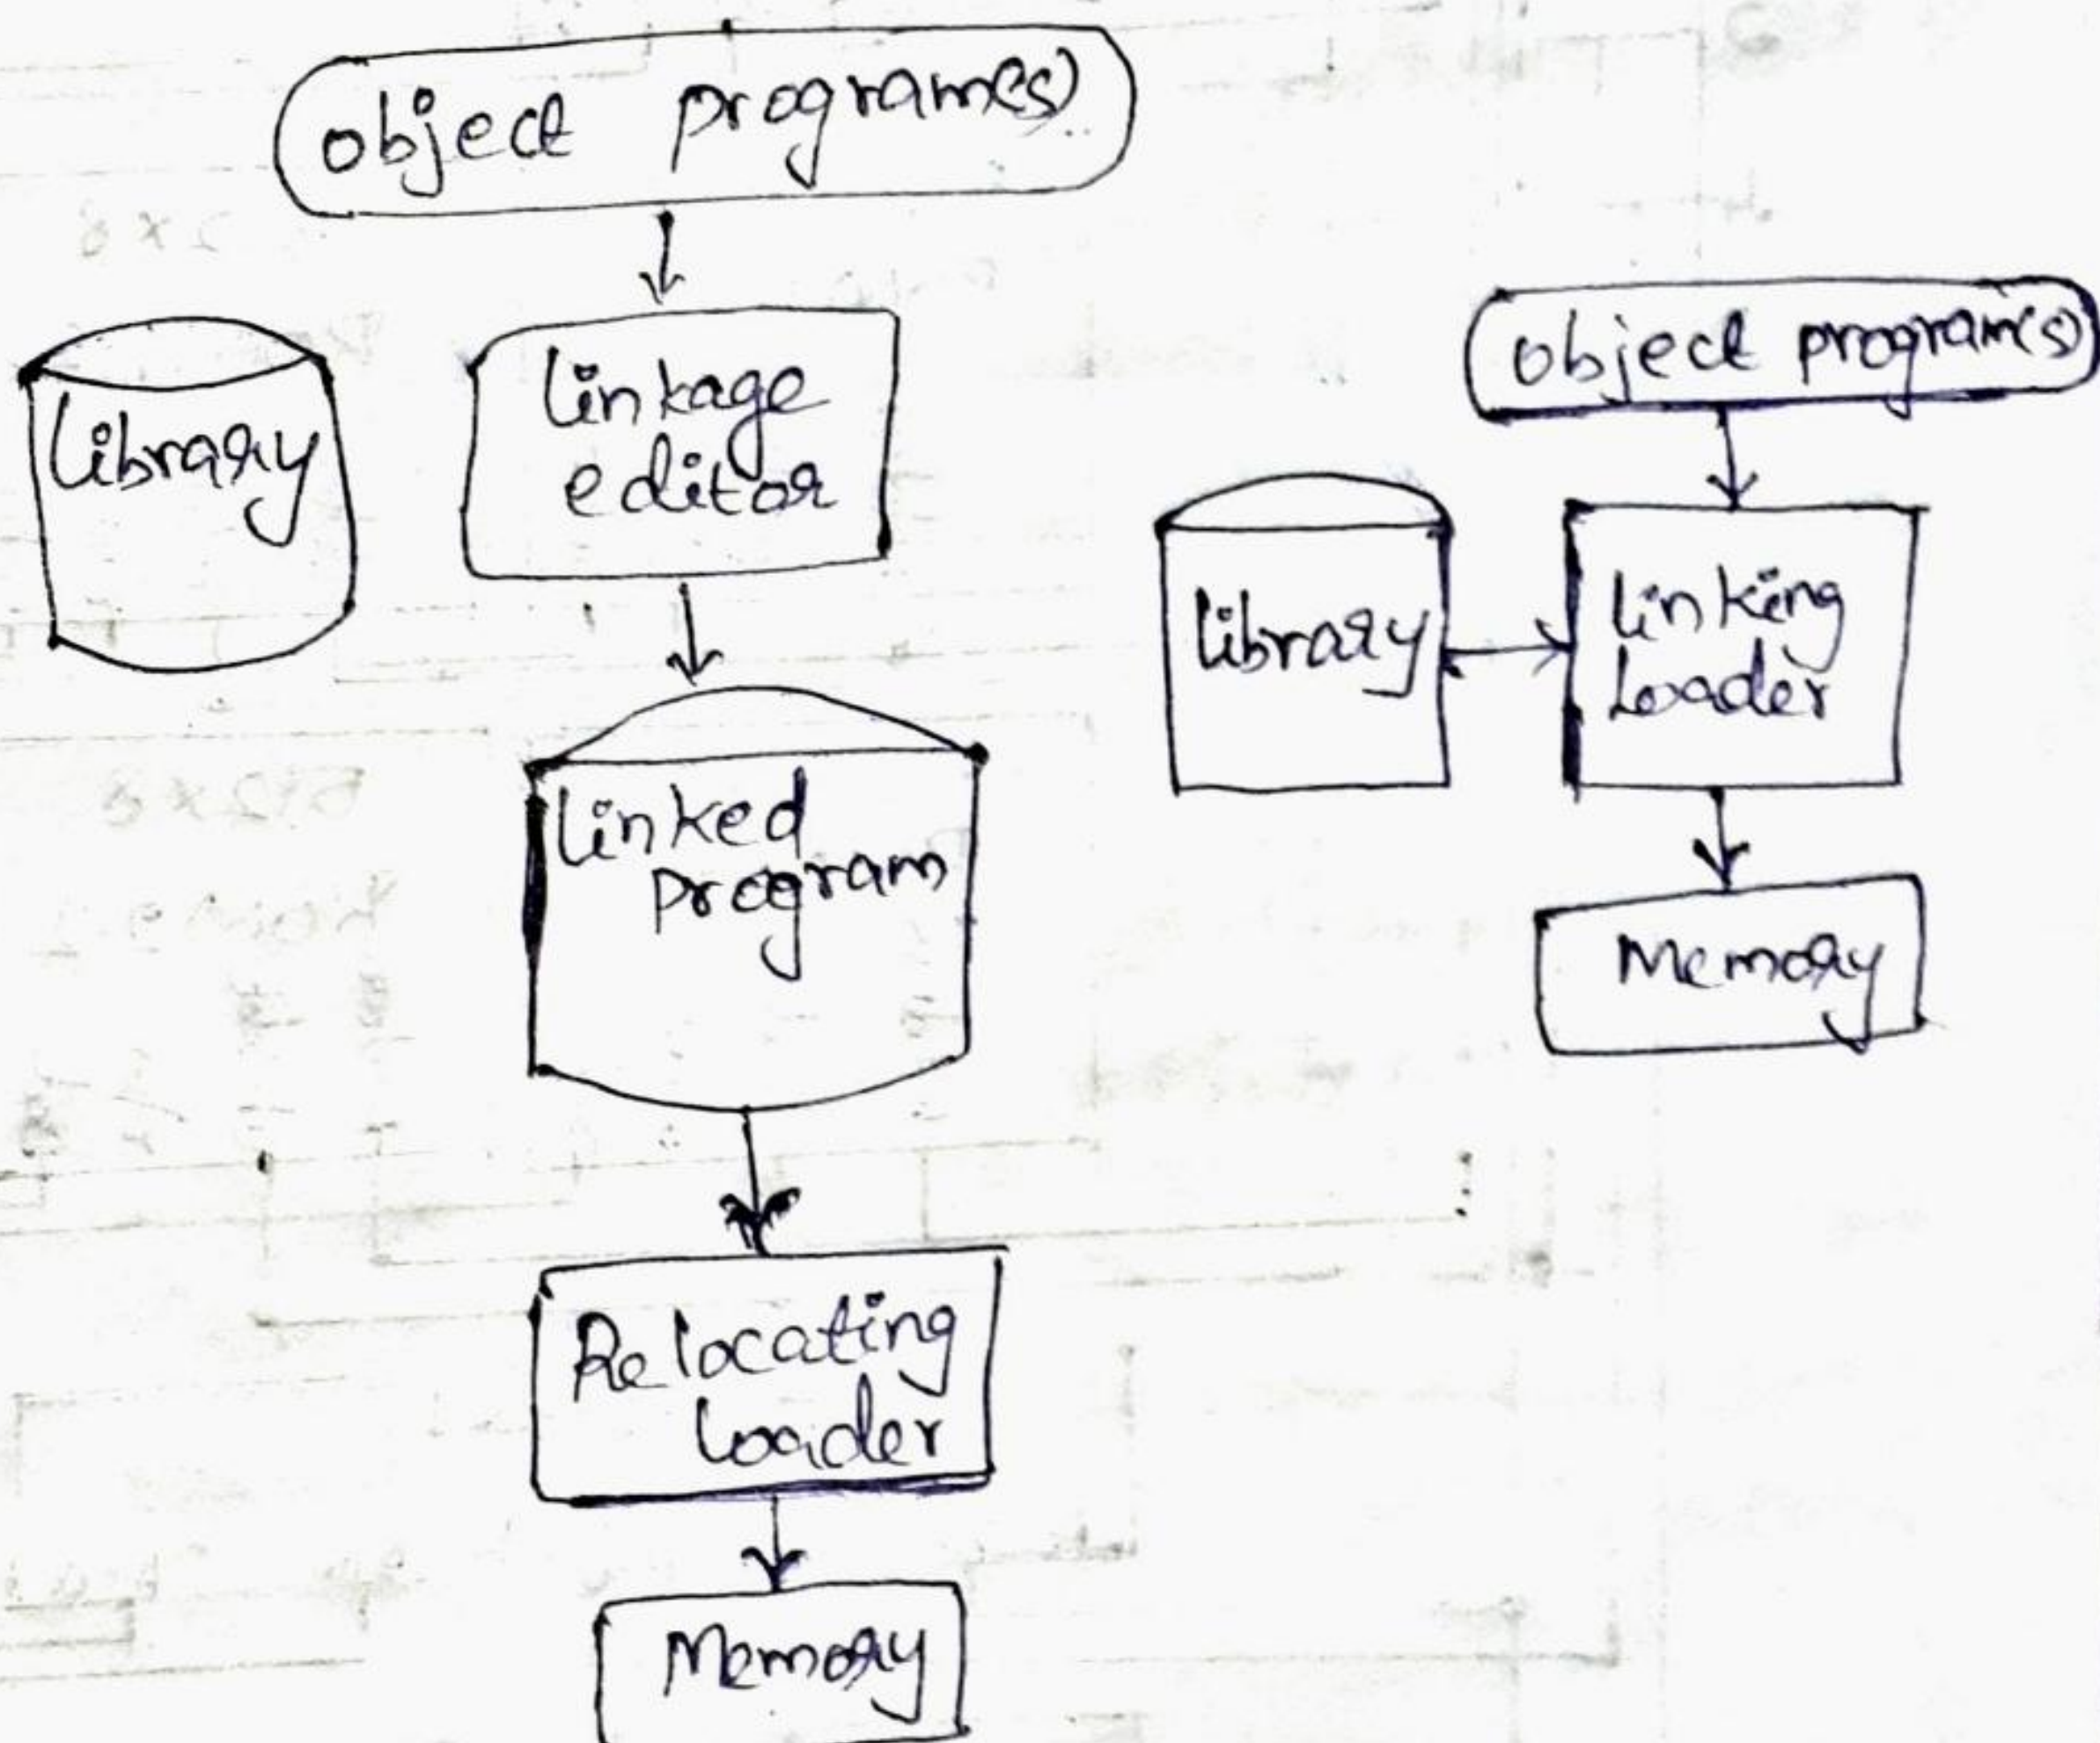 object programe(s)
library
linkage
editor
linked
program
Relocating
loader
Memory
object program(s)
library
linking
Loader
Memory